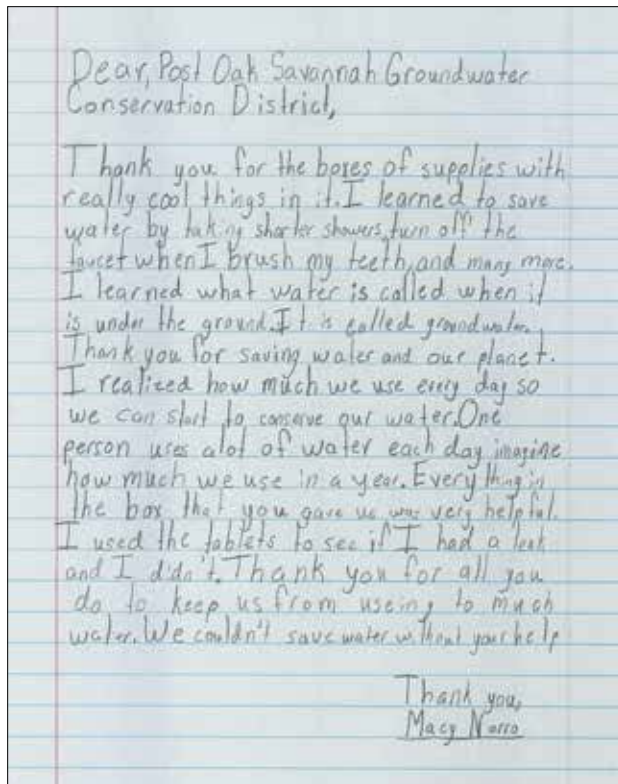 Dear, Post Oak Savannah Groundwater
Conservation District,
Thank you for the boxes of supplies with
really cool things in it. I learned to save
water by taking shorter showers, turn off the
faucet when I brush my teeth, and many more.
I learned what water is called when it
is under the ground. It is called groundwater.
Thank you for saving water and our planet.
I realized how much we use every day so
we can start to conserve our water. One
person uses alot of water each day imagine
how much we use in a year. Every thing in
the box that you gave us was very helpful.
I used the tablets to see if I had a leak
and I didn't. Thank you for all you
do to keep us from useing to much
water. We couldn't save water without your help
Thank you,
Macy